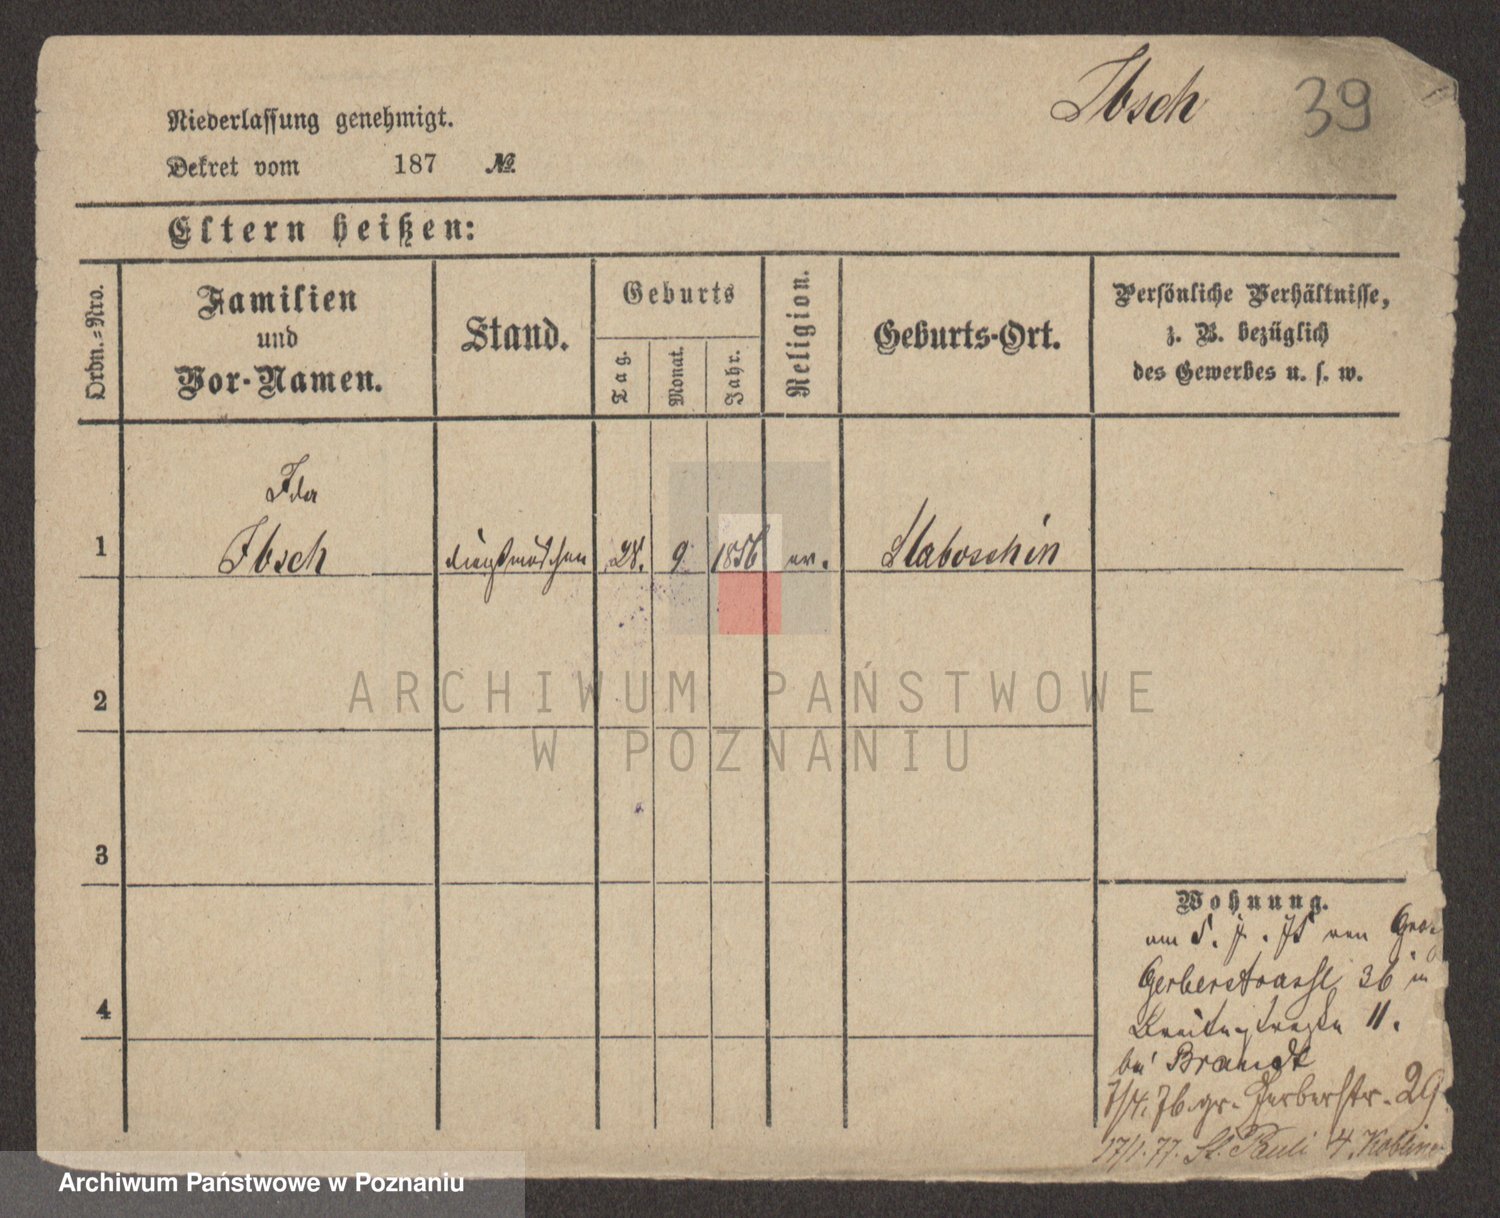 Ibsch
39
Niederlassung genehmigt.
Dekret vom 187 №
Eltern heißen:
Ordn.-Nro.
Familien
und
Vor-Namen.
Stand.
Geburts
Tag.
Monat.
Jahr.
Religion.
Geburts-Ort.
Persönliche Verhältnisse,
z. B. bezüglich
des Gewerbes u. s. w.
Ida
1 Ibsch dienstmädchen 28. 9 1856 ev. Staboschin
2
3
4
Wohnung.
am 5. 75 von
Gerberstrasse 36 in
Breitestraße 11.
bei Brandt
7/4. 76. gr. Gerberstr. 29
17/1. 77. St. Pauli 4.
ARCHIWUM PAŃSTWOWE
W POZNANIU
Archiwum Państwowe w Poznaniu